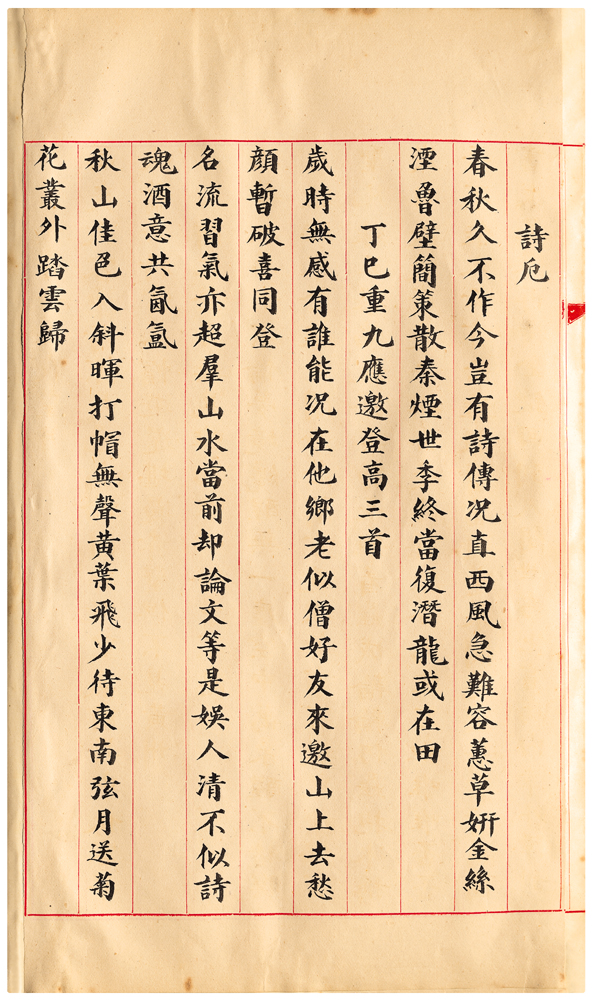 詩厄
春秋久不作今豈有詩傳况直西風急難容蕙草姸金絲
湮魯壁簡策散秦煙世季終當復潛龍或在田
丁巳重九應邀登高三首
歲時無感有誰能况在他鄉老似僧好友來邀山上去愁
顏暫破喜同登
名流習氣亦超羣山水當前却論文等是娛人清不似詩
魂酒意共氤氳
秋山佳色入斜暉打帽無聲黃葉飛少待東南弦月送菊
花叢外踏雲歸